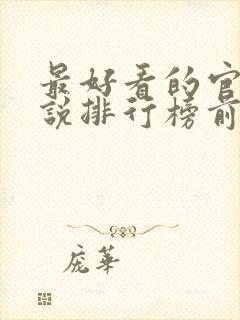 最好看的官
説排行榜前
庞華